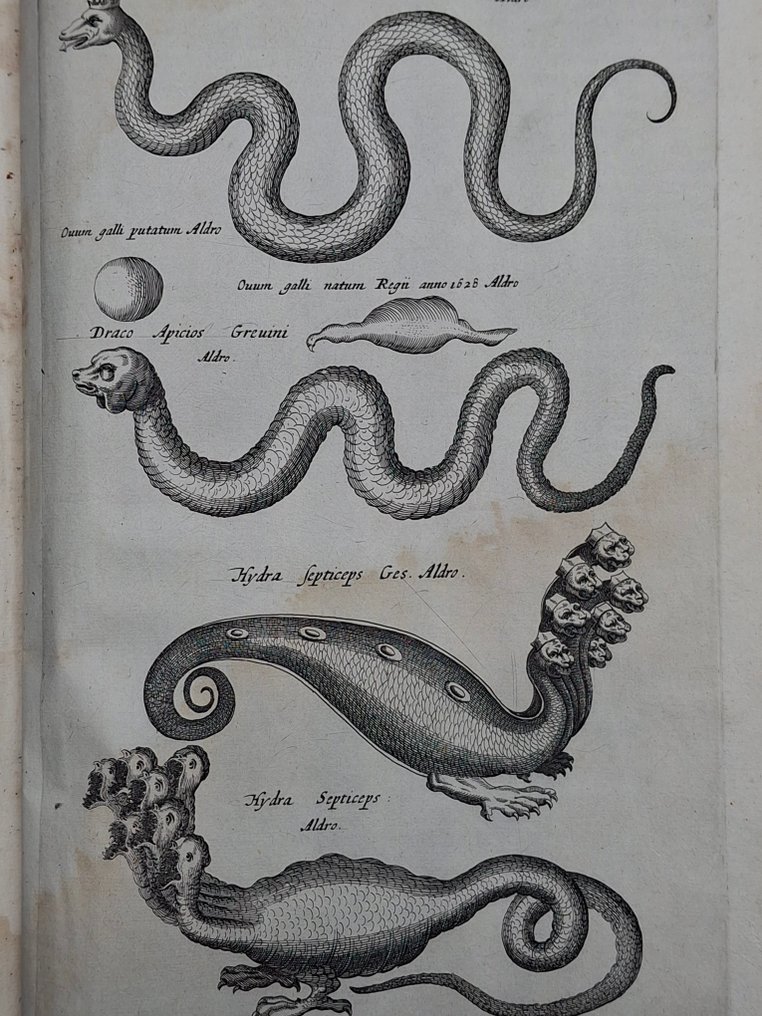 Aldro
Ouum galli putatum Aldro
Ouum galli natum Regii anno 1628 Aldro
Draco Apicios Greuini
Aldro.
Hydra septiceps Ges. Aldro.
Hydra Septiceps:
Aldro.